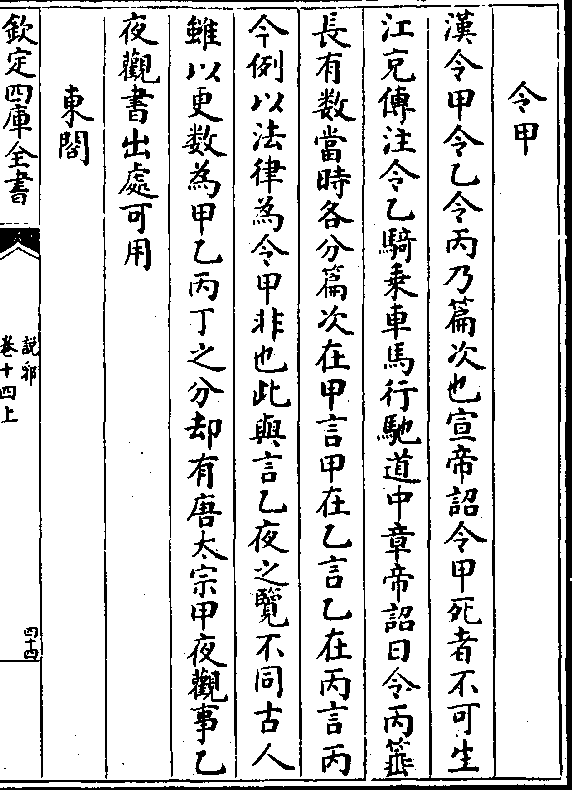 令甲
漢令甲令乙令丙乃篇次也宣帝詔令甲死者不可生
江充傳注令乙騎乗車馬行馳道中章帝詔曰令丙箠
長有数當時各分篇次在甲言甲在乙言乙在丙言丙
今例以法律為令甲非也此與言乙夜之覽不同古人
雖以更数為甲乙丙丁之分却有唐太宗甲夜觀事乙
夜觀書出處可用
東閤
欽定四庫全書
說郛
卷十四上
四十四